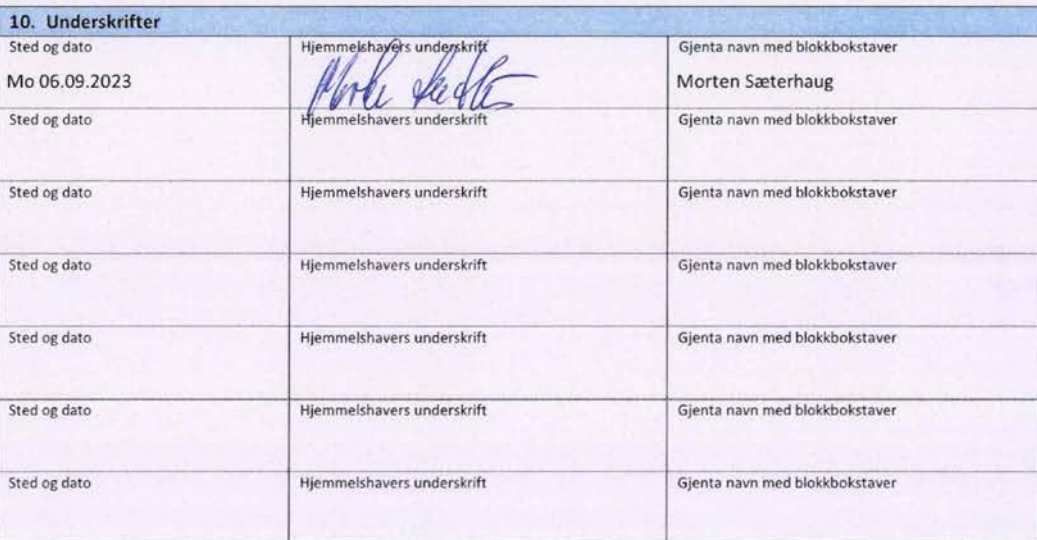 10. Underskrifter
Sted og dato Hjemmelshavers underskrift Gjenta navn med blokkbokstaver
Mo 06.09.2023 Morten Sæterhaug
Sted og dato Hjemmelshavers underskrift Gjenta navn med blokkbokstaver
Sted og dato Hjemmelshavers underskrift Gjenta navn med blokkbokstaver
Sted og dato Hjemmelshavers underskrift Gjenta navn med blokkbokstaver
Sted og dato Hjemmelshavers underskrift Gjenta navn med blokkbokstaver
Sted og dato Hjemmelshavers underskrift Gjenta navn med blokkbokstaver
Sted og dato Hjemmelshavers underskrift Gjenta navn med blokkbokstaver